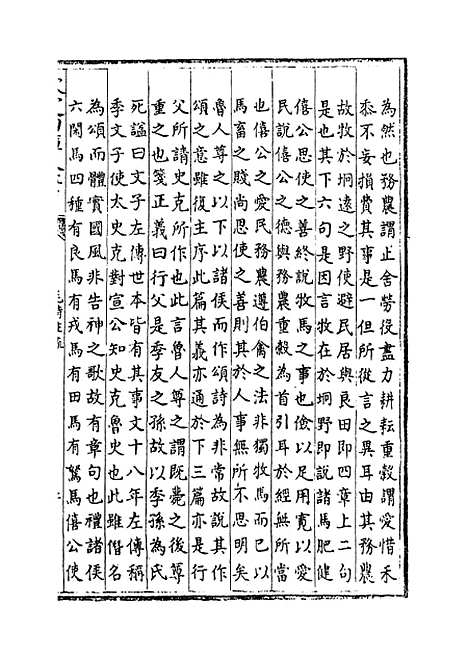 為然也務農謂止舍勞役盡力耕耘重穀謂愛惜禾
黍不妄損費其事是一但所從言之異耳由其務農
故牧於坰遠之野使避民居與良田即四章上二句
是也其下六句是因言牧在於坰野即說諸馬肥健
僖公思使之善終說牧馬之事也儉以足用寛以愛
民說僖公之德與務農重穀為首引耳於經無所當
也僖公之愛民務農遵伯禽之法非獨牧馬而已以
馬畜之賤尚思使之善則其於人事無所不思明矣
魯人尊之以下以諸侯而作頌詩為非常故說其作
頌之意雖復主序此篇其義亦通於下三篇亦是行
父所請史克所作也此言魯人尊之謂既薨之後尊
重之也箋正義曰行父是季友之孫故以季孫為氏
死謚曰文子左傳世本皆有其事文十八年左傳稱
季文子使太史克對宣公知史克魯史也此雖僭名
為頌而體實國風非告神之歌故有章句也禮諸侯
六閑馬四種有良馬有戎馬有田馬有駑馬僖公使
毛詩注疏